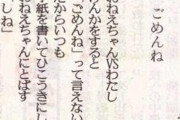 ごめんね
おねえちゃんVSわたし
んかをすると
ごめんね」って言えない
からいつも
紙を書いてひこうきにし
ねえちゃんにとばす